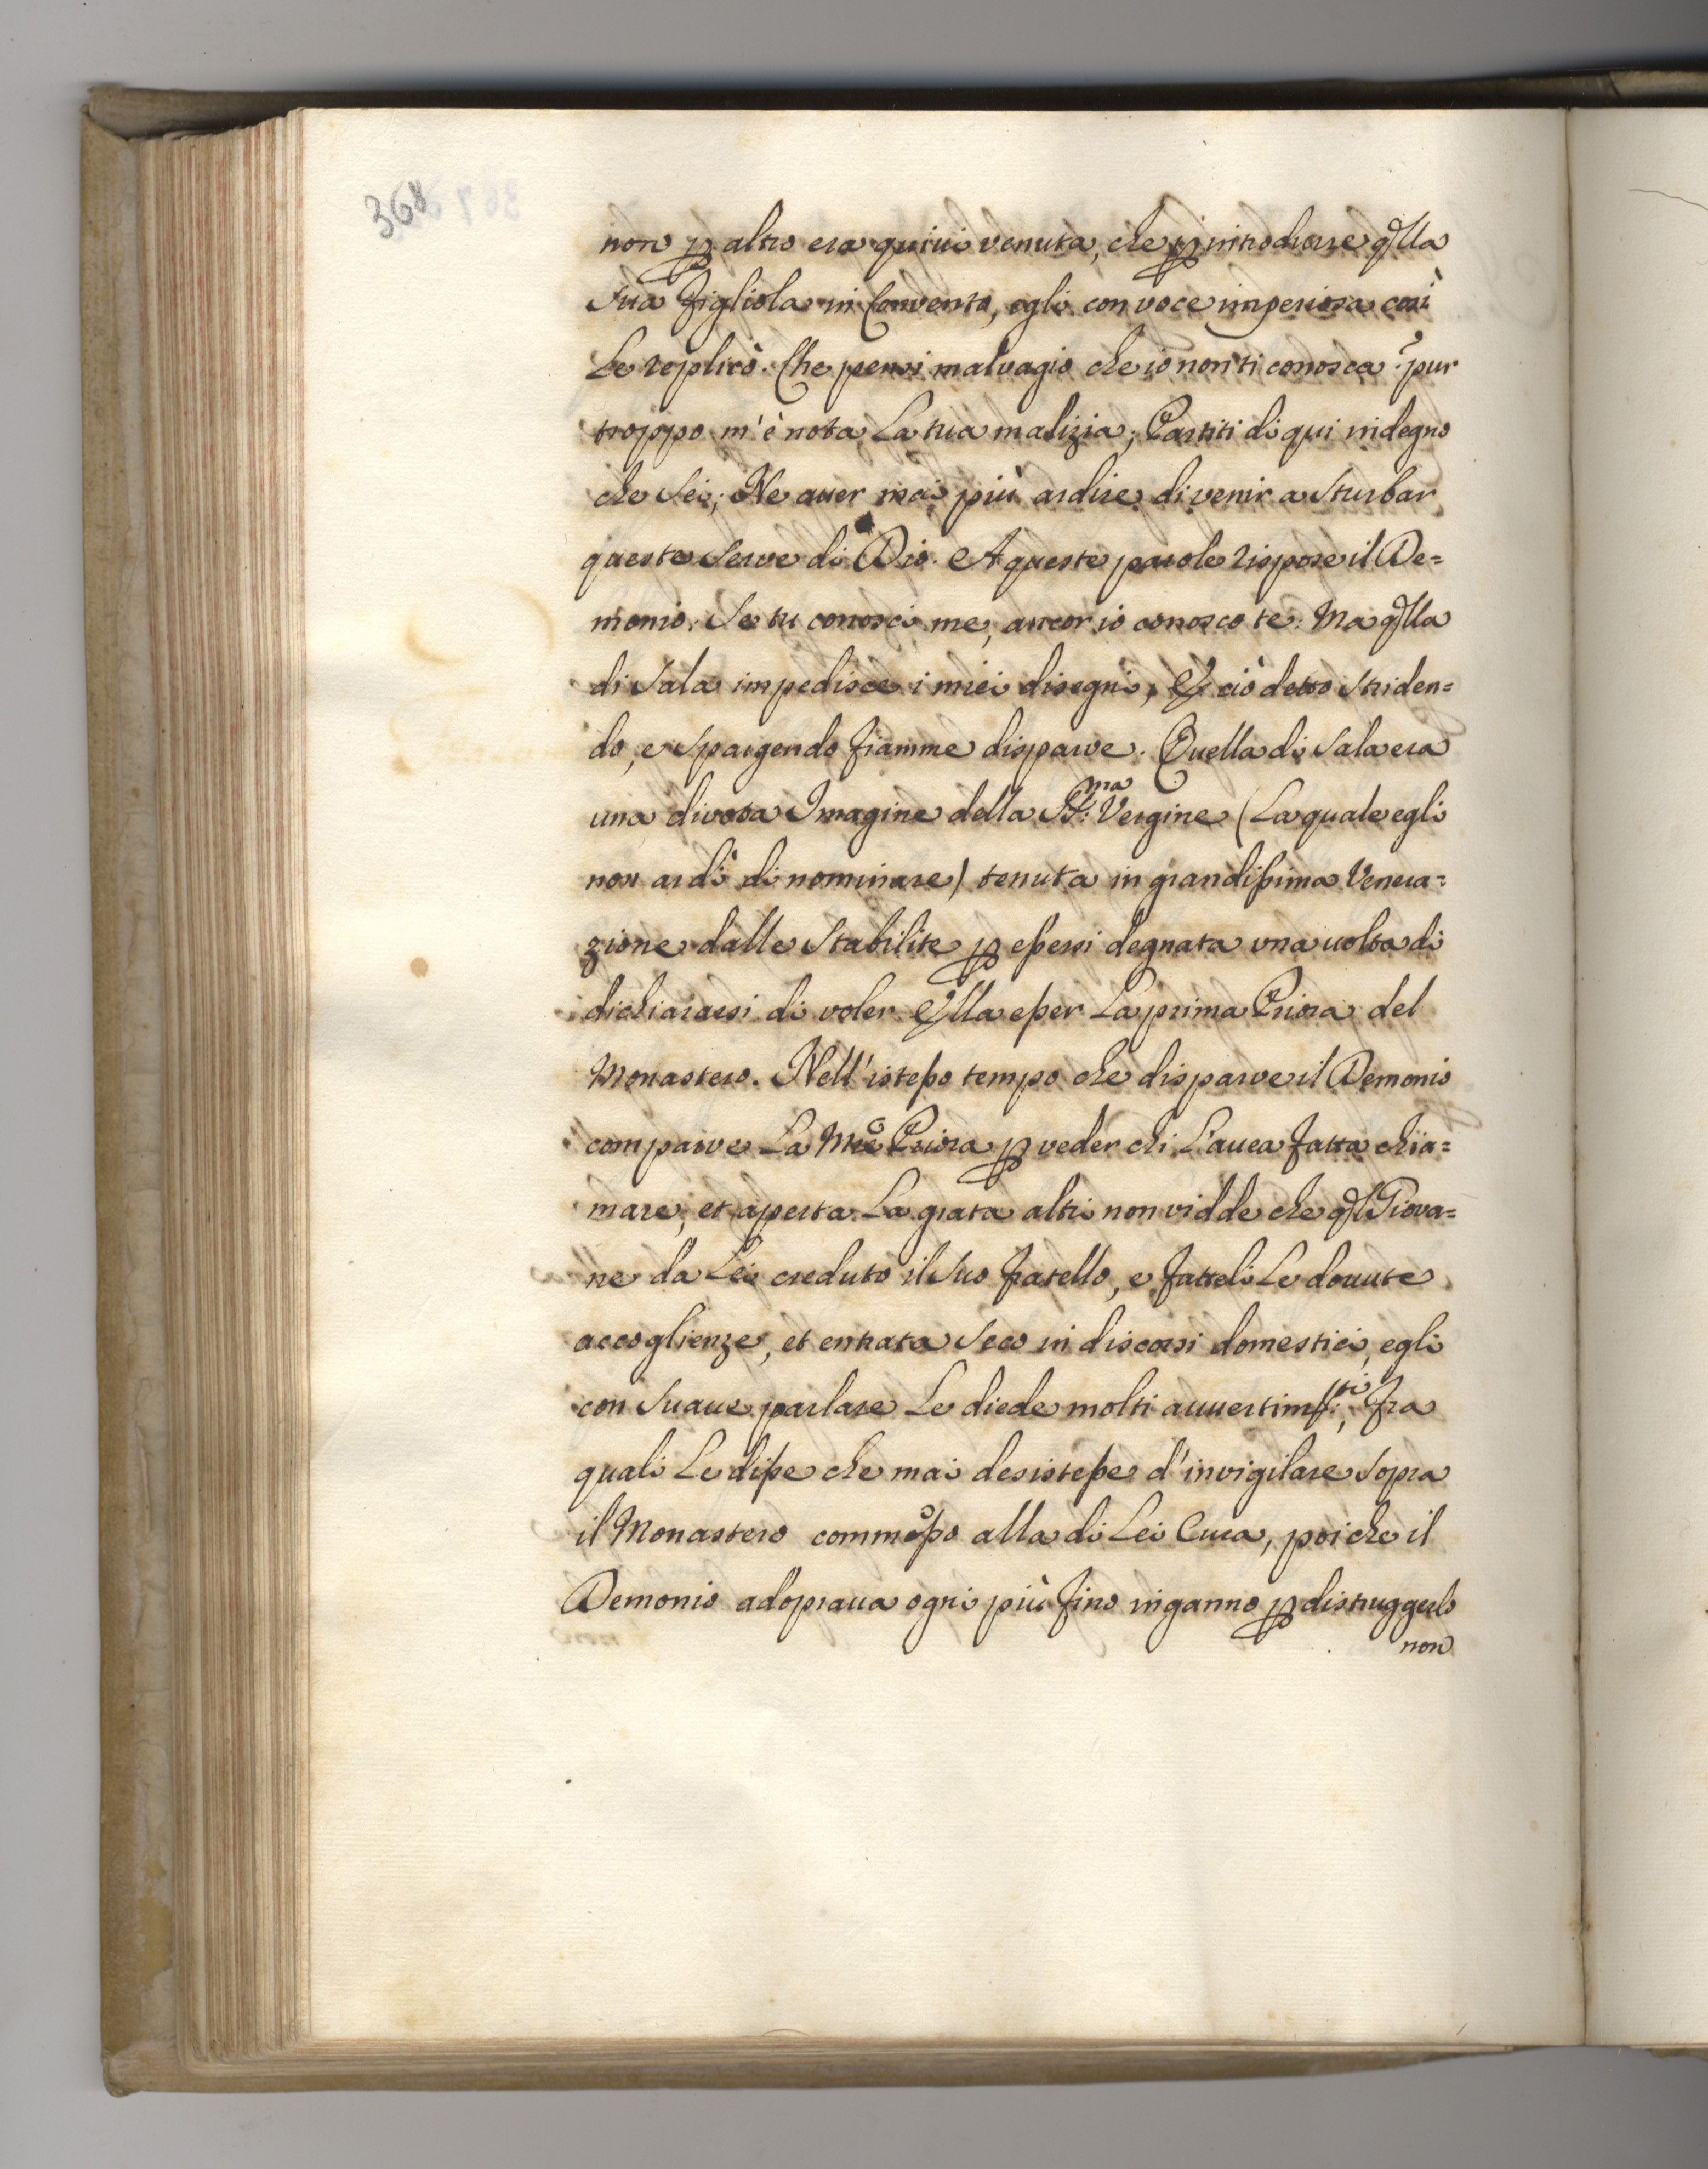 368
non p altro era quivi venuta, che p introdurre qlla
sua figliola in Convento, egli con voce imperiosa così
Le replicò. Che pensi malvagio che io non ti conosca? pur
troppo m'è nota La tua malizia; Partiti di qui indegno
che sei; Ne auer mai più ardire di venir a sturbar
queste serve di Dio. A queste parole rispose il De=
monio. Se tu conosci me, ancor io conosco te. Ma qlla
di sala impedisce i miei disegni, E ciò detto striden=
do, e spargendo fiamme disparve. Quella di sala era
una divota Imagine della SS:ma Vergine (La quale egli
non ardì di nominare) tenuta in grandissima Venera=
zione dalle Stabilite p essersi degnata una uolta di
dichiararsi di voler Ella esser La prima Priora del
Monastero. Nell'istesso tempo che disparve il Demonio
comparve La Mre Priora p veder chi L'auea fatta chia=
mare, et aperta La grata altri non vidde che ql Giova=
ne da Lei creduto il suo fratello, e fatteli Le douute
accoglienze, et entrata seco in discorsi domestici, egli
con suaue parlare Le diede molti auuertim:ti, fra
quali Le disse che mai desistesse d'invigilare sopra
il Monastero commesso alla di Lei Cura, poiche il
Demonio adopraua ogni più fino inganno p distruggerlo
non